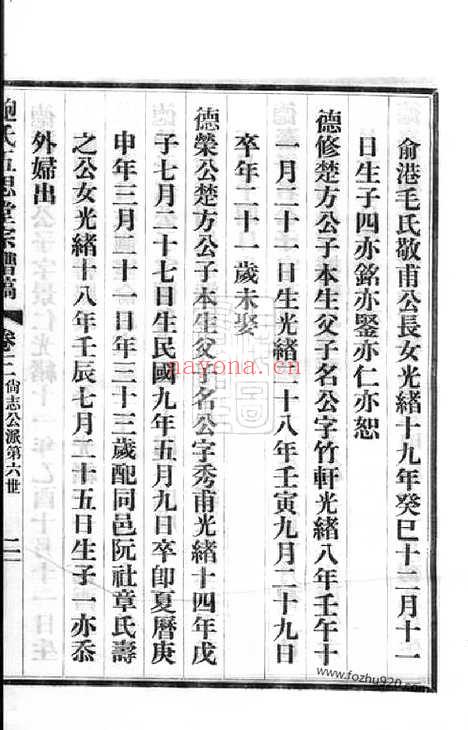 俞港毛氏敬甫公長女光緒十九年癸巳十二月十一
日生子四亦銘亦鋻亦仁亦恕
德修楚方公子本生父子名公字竹軒光緒八年壬午十
一月二十一日生光緒二十八年壬寅九月二十九日
卒年二十一歲未娶
德榮公楚方公子本生父子名公字秀甫光緒十四年戊
子七月二十七日生民國九年五月九日卒卽夏曆庚
申年三月二十一日年三十三歲配同邑阮社章氏壽
之公女光緒十八年壬辰七月二十五日生子一亦忝
外婦出
鮑氏五思堂宗譜稿
卷二
尙志公派第六世
二
nayona.cn
www.fozhu920.com